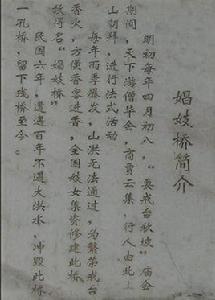 娼妓桥简介
明初每年四月初八，“奥戒台秋坡”庙会
期间，天下游僧毕会，商贾云集，行人由北上
山朝拜，进行法式活动
每年雨季爆发，山洪无法通过，为繁荣戒台
香火，方便香客进香，全国妓女集资修建此桥
故得名“娼妓桥”
民国六年，遭遇百年不遇大洪水，冲毁此桥
一孔桥，留下残桥至今。